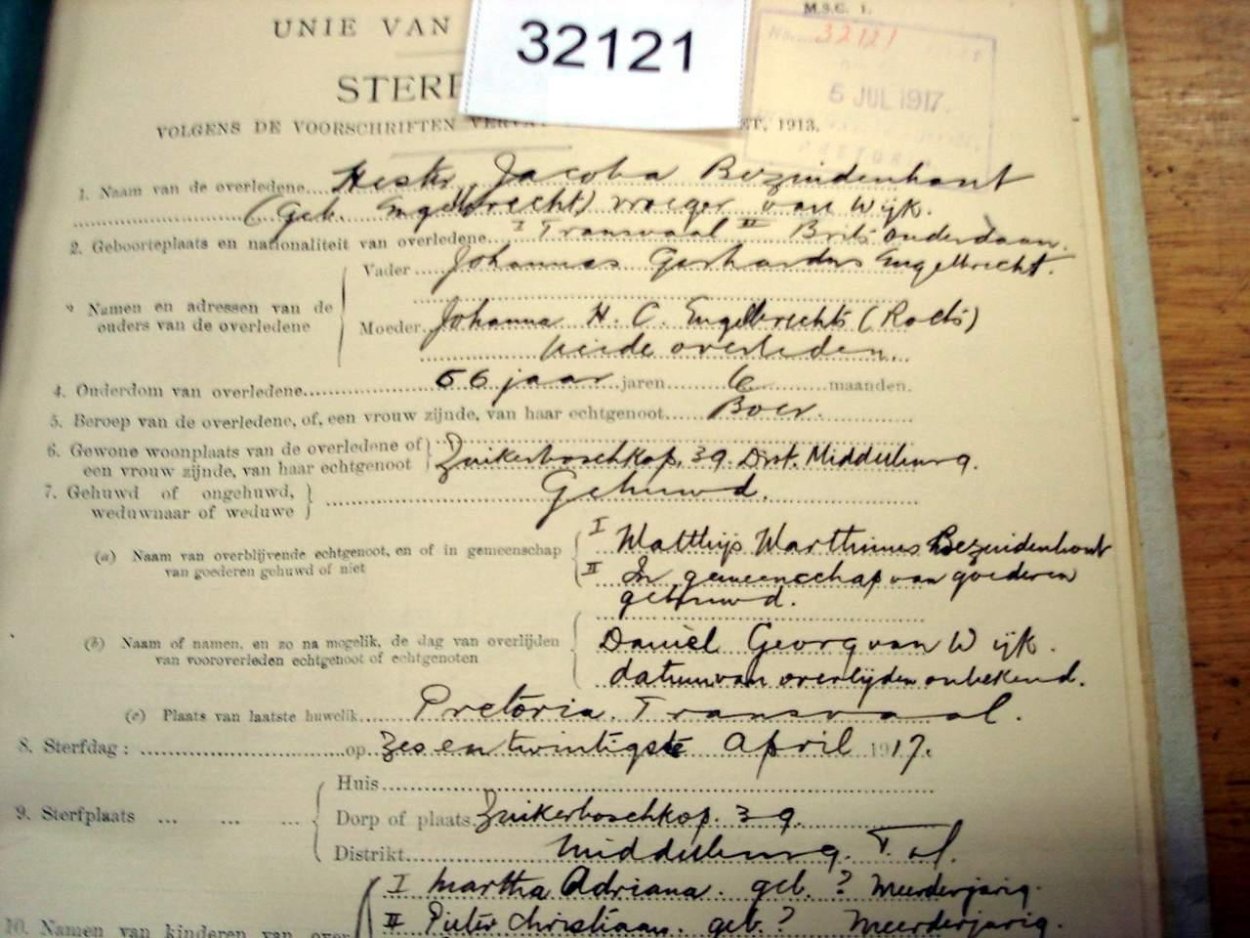 M.S.C. 1.
UNIE VAN
32121
No. 32121
STERF
6 JUL 1917
VOLGENS DE VOORSCHRIFTEN VERVA ET, 1913.
1. Naam van de overledene Hester Jacoba Bezuidenhout
(Geb. Engelbrecht) vroeger van Wijk.
2. Geboorteplaats en nationaliteit van overledene I Transvaal II Brits onderdaan.
Vader Johannes Gerhardus Engelbrecht.
Namen en adressen van de
ouders van de overledene
Moeder Johanna H. C. Engelbrechts (Roets)
beide overleden.
4. Ouderdom van overledene 66 jaar jaren 6 maanden.
5. Beroep van de overledene, of, een vrouw zijnde, van haar echtgenoot Boer.
6. Gewone woonplaats van de overledene of
een vrouw zijnde, van haar echtgenoot Zuikerboschkop. 39. Dist. Middelburg.
7. Gehuwd of ongehuwd,
weduwnaar of weduwe Gehuwd.
(a) Naam van overblijvende echtgenoot, en of in gemeenschap
van goederen gehuwd of niet
I Matthijs Marthinus Bezuidenhout
II In gemeenschap van goederen
gehuwd.
(b) Naam of namen, en zo na mogelik, de dag van overlijden
van vooroverleden echtgenoot of echtgenoten
Daniël Georg van Wijk.
datum van overlijden onbekend.
(c) Plaats van laatste huwelik Pretoria. Transvaal.
8. Sterfdag: op zes en twintigste April 1917.
9. Sterfplaats ... ... ...
Huis
Dorp of plaats Zuikerboschkop. 39.
Distrikt Middelburg. T vl.
I Martha Adriana. geb. ? Meerderjarig.
II Pieter Christiaan. geb. ? Meerderjarig.
10. Namen van kinderen van over